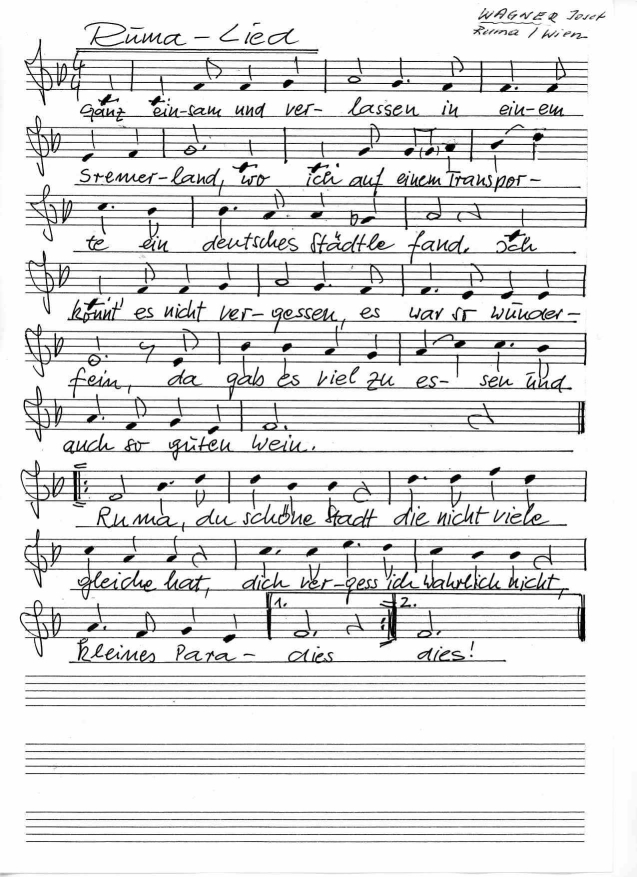 Ruma-Lied
WAGNER Josef
Ruma / Wien
4/4
Ganz ein-sam und ver- lassen in ein-em
Sremer-land, wo ich auf einem Transpor-
te ein deutsches Städtle fand. Ich
könnt' es nicht ver-gessen, es war so wunder-
fein, da gab es viel zu es- sen und
auch so guten Wein.
Ruma, du schöne Stadt die nicht viele
gleiche hat, dich ver-gess ich wahrlich nicht,
1. 2.
kleines Para- dies dies!